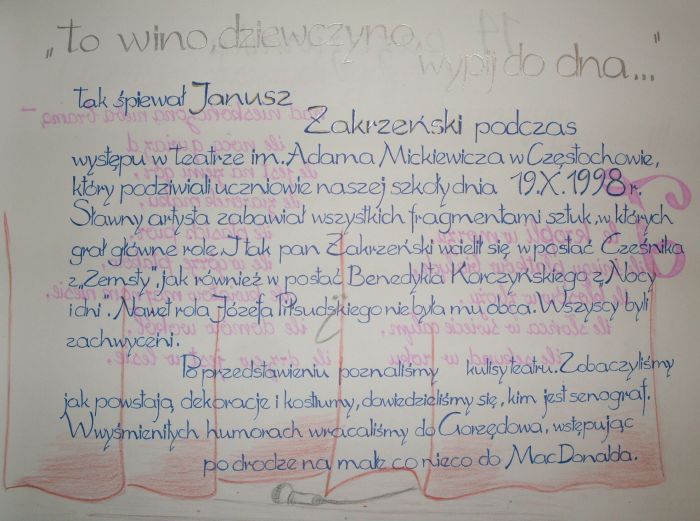 „to wino, dziewczyno,
wypij do dna..."
tak śpiewał Janusz
Zakrzeński podczas
występu w teatrze im. Adama Mickiewicza w Częstochowie,
który podziwiali uczniowie naszej szkoły dnia 19.X.1998 r.
Sławny artysta zabawiał wszystkich fragmentami sztuk, w których
grał główne role. I tak pan Zakrzeński wcielił się w postać Cześnika
z „Zemsty", jak również w postać Benedykta Korczyńskiego z „Nocy
i dni". Nawet rola Józefa Piłsudskiego nie była mu obca. Wszyscy byli
zachwyceni.
Po przedstawieniu poznaliśmy kulisy teatru. Zobaczyliśmy
jak powstają dekoracje i kostiumy, dowiedzieliśmy się, kim jest senograf.
W wyśmienitych humorach wracaliśmy do Gorzędowa, wstępując
po drodze na małe co nieco do MacDonalda.